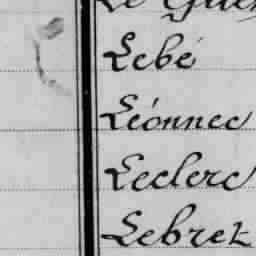 Le Guen
Lebé
Léonnec
Leclerc
Lebret